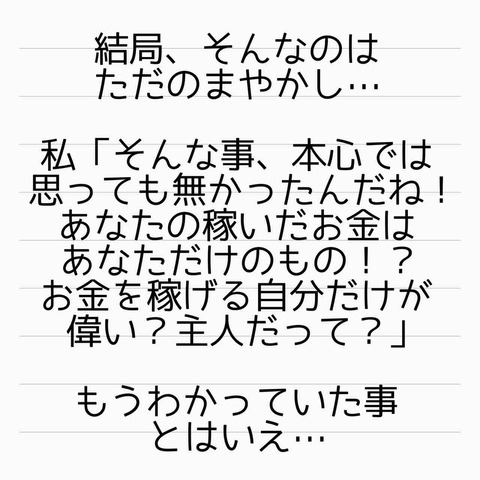 結局、そんなのは
ただのまやかし…
私「そんな事、本心では
思っても無かったんだね！
あなたの稼いだお金は
あなただけのもの！？
お金を稼げる自分だけが
偉い？主人だって？」
もうわかっていた事
とはいえ…